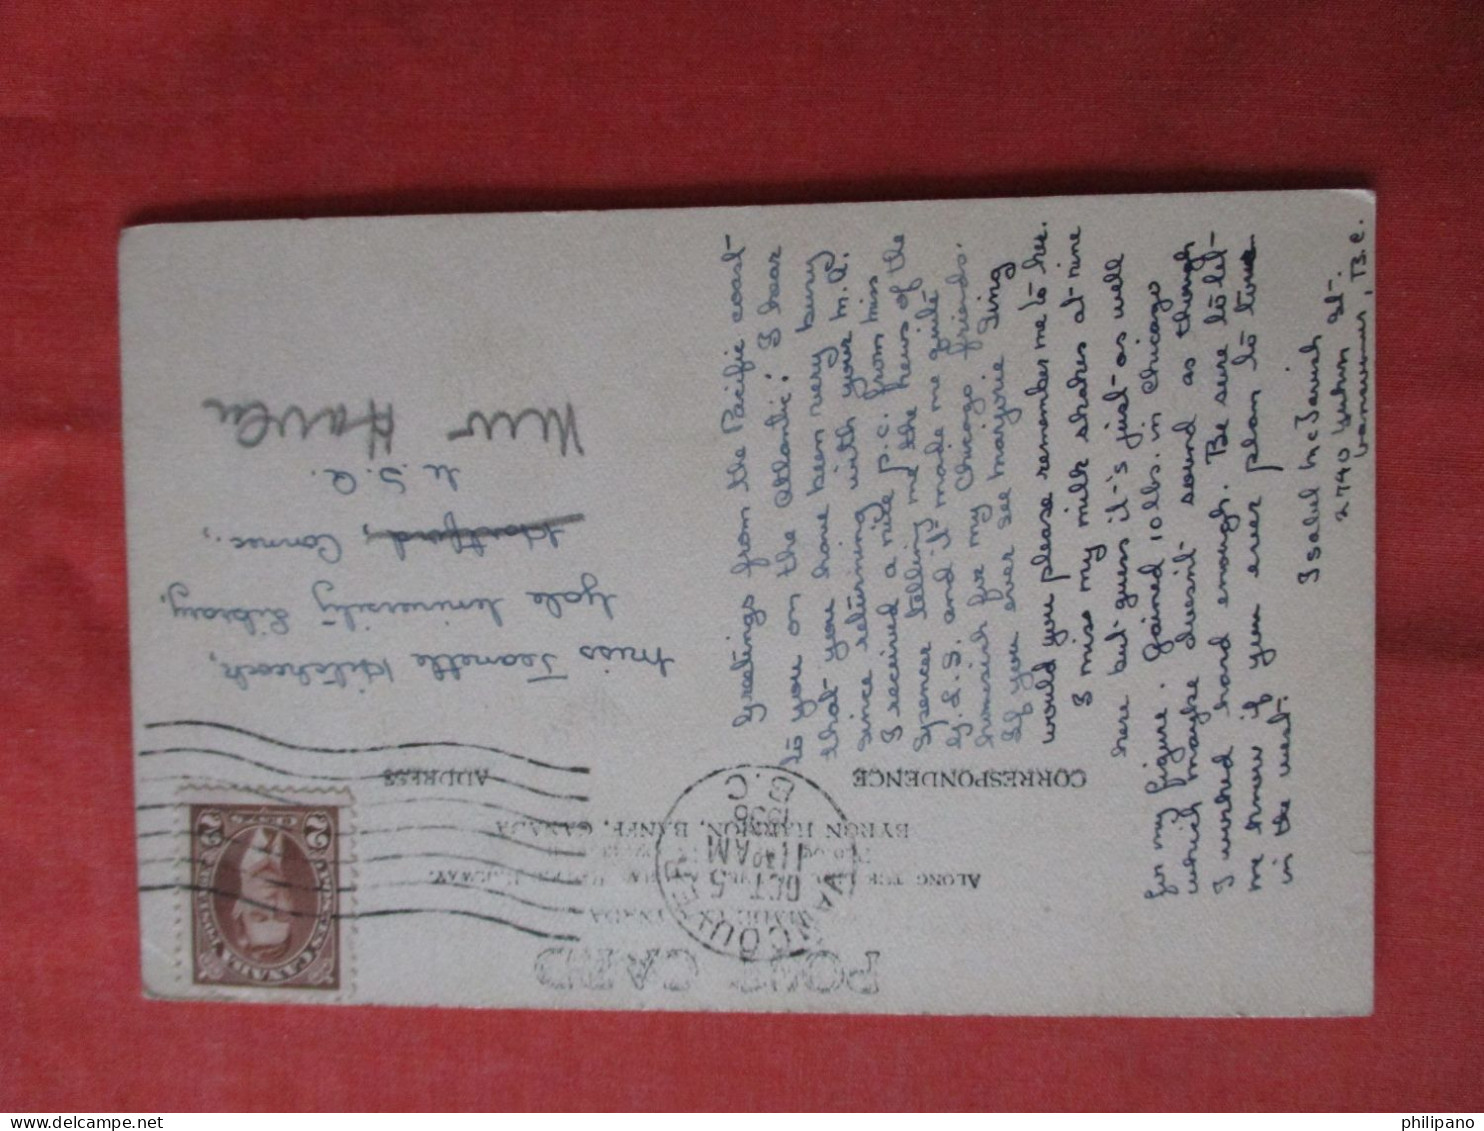 POST CARD
MADE IN CANADA
BYRON HARMON, BANFF, CANADA
CORRESPONDENCE
ADDRESS
VANCOUVER
OCT 5
11 AM
1938
B.C.
CANADA
2 CENTS 2
Greetings from the Pacific coast
to you on the Atlantic! I hear
that you have been very busy
since returning with your M.A.
I received a nice p.c. from Miss
Spencer telling me the news of the
G.L.S. and it made me quite
homesick for my Chicago friends.
If you ever see Marjorie Ting
would you please remember me to her.
I miss my milk shakes at nine
here but guess it's just as well
for my figure. Gained 10 lbs. in Chicago
which maybe doesn't sound as though
I worked hard enough. Be sure to let
me know if you ever plan to tour
in the west.
Isabel McTavish
2740 Yukon St.
Vancouver, B.C.
Miss Jeanette Hitchcock,
Yale University Library,
Hartford, Connec.,
U.S.A.
New Haven
philipano